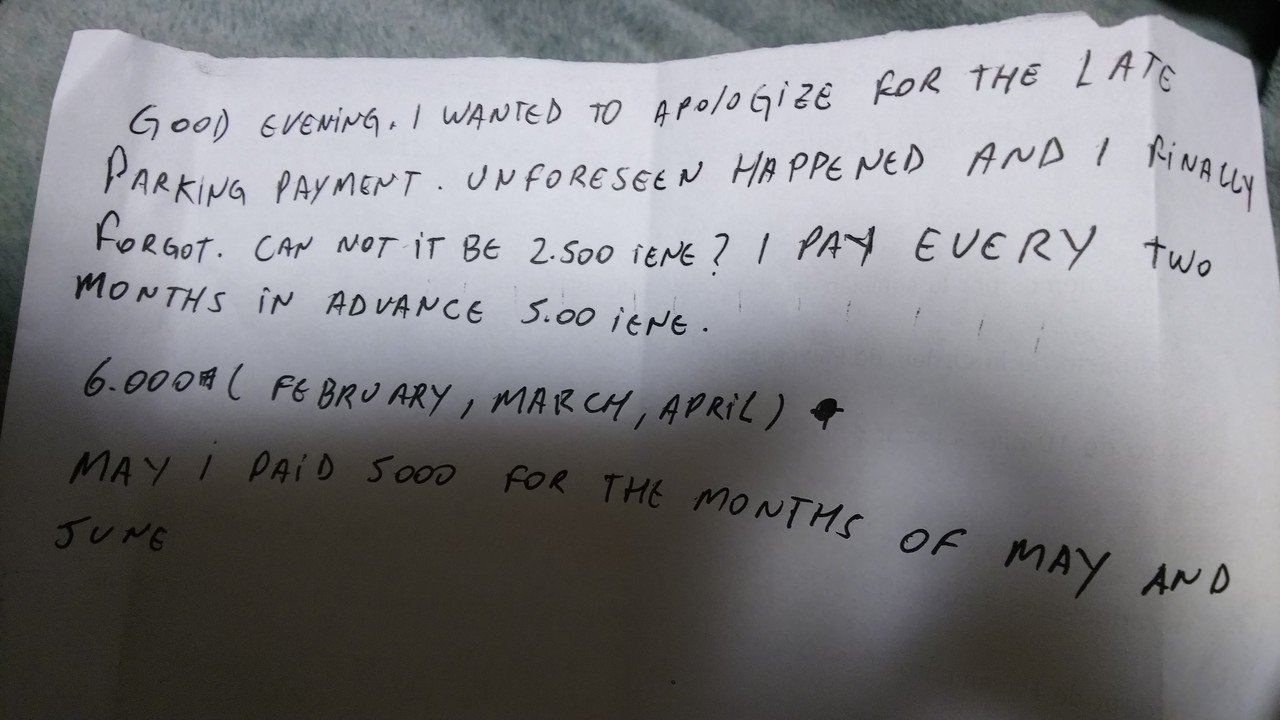 GOOD EVENING. I WANTED TO APOLOGIZE FOR THE LATE
PARKING PAYMENT. UNFORESEEN HAPPENED AND I FINALLY
FORGOT. CAN NOT IT BE 2.500 IENE? I PAY EVERY TWO
MONTHS IN ADVANCE 5.00 IENE.
6.000 ( FEBRUARY, MARCH, APRIL)
MAY I PAID 5000 FOR THE MONTHS OF MAY AND
JUNE